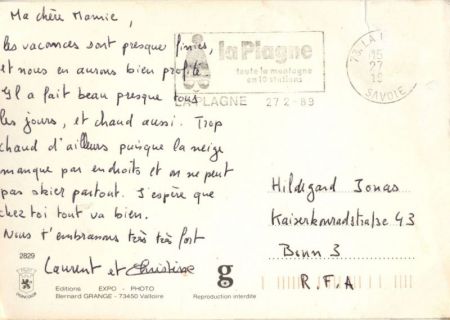 Ma chère Mamie,
les vacances sont presque finies,
et nous en aurons bien profité.
Il a fait beau presque tous
les jours, et chaud aussi. Trop
chaud d'ailleurs puisque la neige
manque par endroits et on ne peut
pas skier partout. J'espère que
chez toi tout va bien.
Nous t'embrassons très très fort
Laurent et Christine
la Plagne
toute la montagne
en 10 stations
LA PLAGNE 27 2-89
73 LA
27
SAVOIE
Hildegard Jonas
Kaiserkonradstraße 43
Bonn 3
R.F.A
2829
Editions EXPO - PHOTO
Bernard GRANGE - 73450 Valloire
g
Reproduction interdite